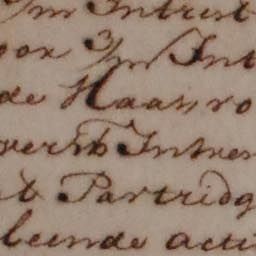 /m Intrest
oor 3/m Int
de Haas, ro
verss Intres
& Partridg
leende acti